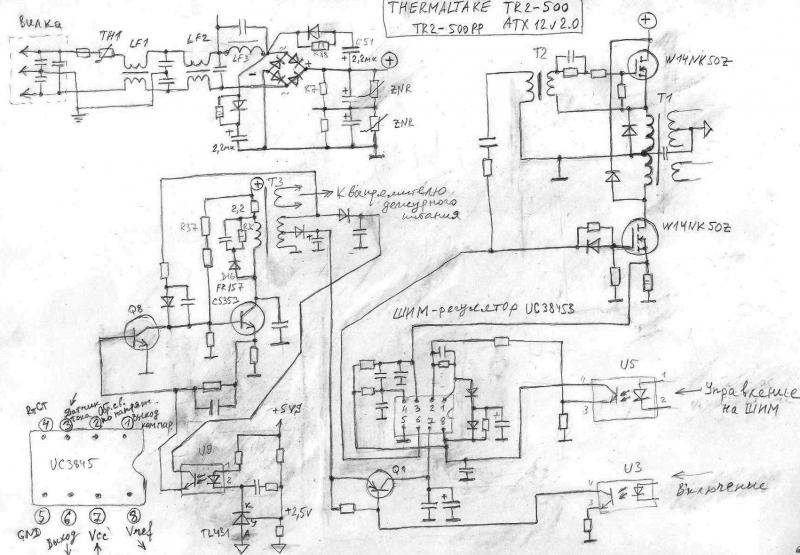 THERMALTAKE TR2-500
TR2-500PP ATX 12v2.0
Вилка
TH1
LF1
LF2
LF3
R88
C51
2,2мк
R7
ZNR
ZNR
2,2мк
T2
W14NK50Z
T1
W14NK50Z
T3
К выпрямителю
дежурного
питания
R37
2,2
D16
FR157
C5353
Q8
ШИМ-регулятор UC3845B
4 3 2 1
5 6 7 8
U5
4
3
1
2
Управление
на ШИМ
U3
4
3
Включение
Q1
U9
1
2
+5VSB
+2,5V
TL431
K
A
RтCT
Датчик
тока
Обр.св.
по напряж.
Выход
компар.
4 3 2 1
UC3845
5 6 7 8
GND
Выход
Vcc
Vref